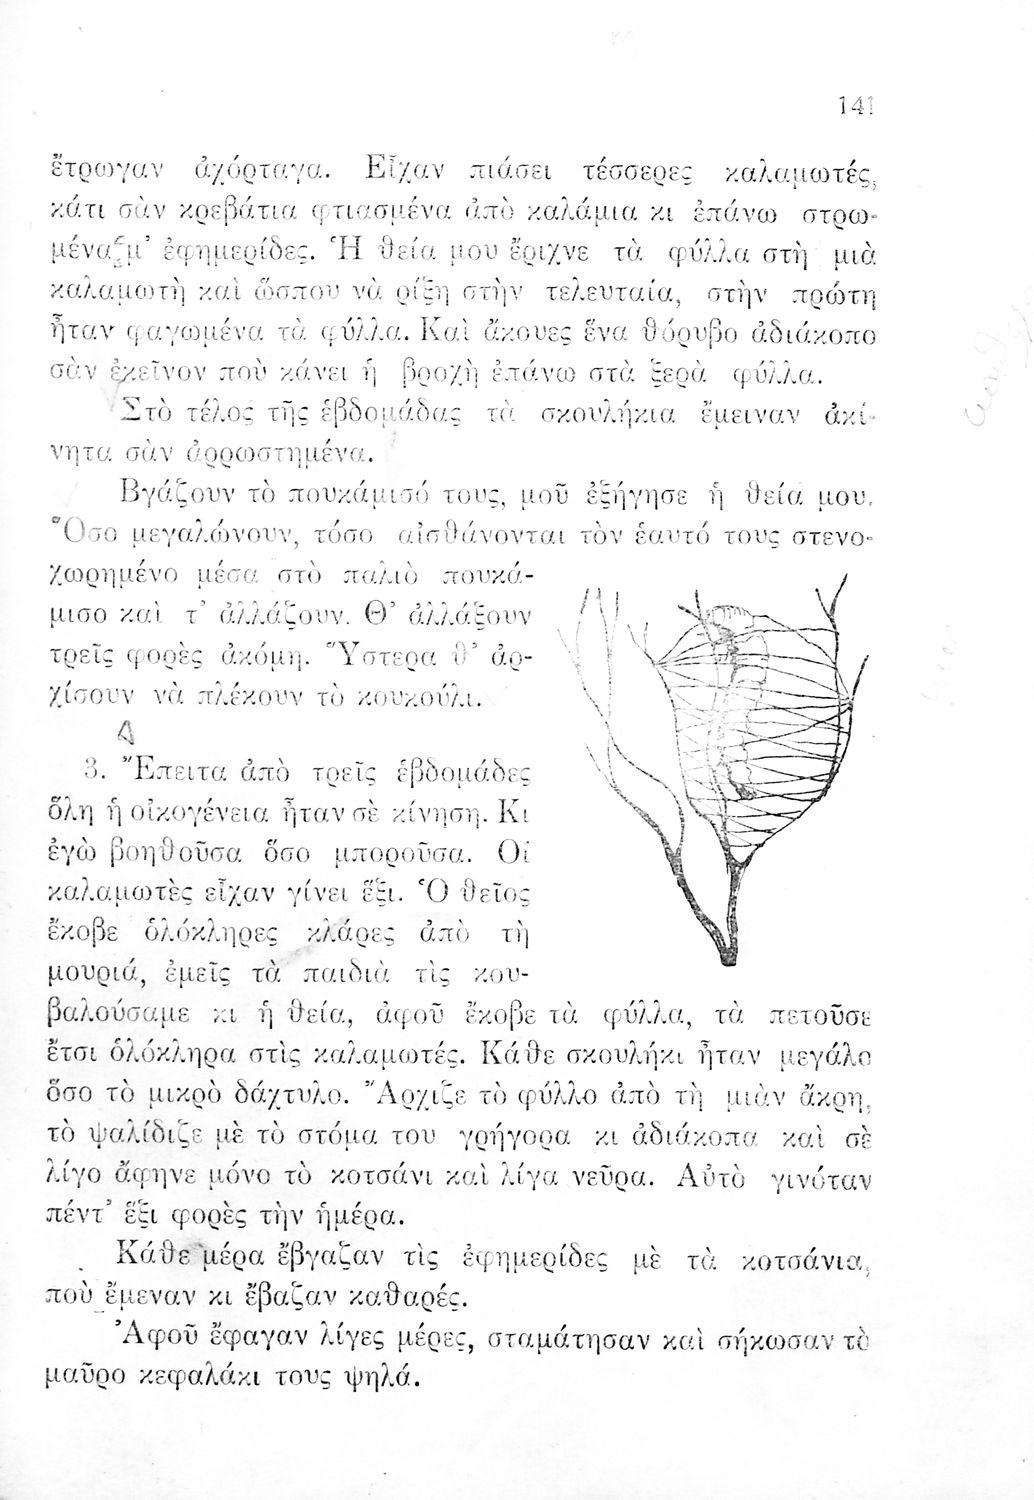 141
ἔτρωγαν ἀχόρταγα. Εἶχαν πιάσει τέσσερες καλαμωτές,
κάτι σὰν κρεβάτια φτιασμένα ἀπὸ καλάμια κι ἐπάνω στρω-
μένα μ’ ἐφημερίδες. Ἡ θεία μου ἔριχνε τὰ φύλλα στὴ μιὰ
καλαμωτὴ καὶ ὥσπου νὰ ρίξη στὴν τελευταία, στὴν πρώτη
ἦταν φαγωμένα τὰ φύλλα. Καὶ ἄκουες ἕνα θόρυβο ἀδιάκοπο
σὰν ἐκεῖνον ποὺ κάνει ἡ βροχὴ ἐπάνω στὰ ξερὰ φύλλα.
Στὸ τέλος τῆς ἑβδομάδας τὰ σκουλήκια ἔμειναν ἀκί-
νητα σὰν ἀρρωστημένα.
Βγάζουν τὸ πουκάμισό τους, μοῦ ἐξήγησε ἡ θεία μου.
Ὅσο μεγαλώνουν, τόσο αἰσθάνονται τὸν ἑαυτό τους στενο-
χωρημένο μέσα στὸ παλιὸ πουκά-
μισο καὶ τ’ ἀλλάζουν. Θ’ ἀλλάξουν
τρεῖς φορὲς ἀκόμη. Ὕστερα θ’ ἀρ-
χίσουν νὰ πλέκουν τὸ κουκούλι.
3. Ἔπειτα ἀπὸ τρεῖς ἑβδομάδες
ὅλη ἡ οἰκογένεια ἦταν σὲ κίνηση. Κι
ἐγὼ βοηθοῦσα ὅσο μποροῦσα. Οἱ
καλαμωτὲς εἶχαν γίνει ἕξι. Ὁ θεῖος
ἔκοβε ὁλόκληρες κλάρες ἀπὸ τὴ
μουριά, ἐμεῖς τὰ παιδιὰ τὶς κου-
βαλούσαμε κι ἡ θεία, ἀφοῦ ἔκοβε τὰ φύλλα, τὰ πετοῦσε
ἔτσι ὁλόκληρα στὶς καλαμωτές. Κάθε σκουλήκι ἦταν μεγάλο
ὅσο τὸ μικρὸ δάχτυλο. Ἄρχιζε τὸ φύλλο ἀπὸ τὴ μιὰν ἄκρη,
τὸ ψαλίδιζε μὲ τὸ στόμα του γρήγορα κι ἀδιάκοπα καὶ σὲ
λίγο ἄφηνε μόνο τὸ κοτσάνι καὶ λίγα νεῦρα. Αὐτὸ γινόταν
πέντ’ ἕξι φορὲς τὴν ἡμέρα.
Κάθε μέρα ἔβγαζαν τὶς ἐφημερίδες μὲ τὰ κοτσάνια,
ποὺ ἔμεναν κι ἔβαζαν καθαρές.
Ἀφοῦ ἔφαγαν λίγες μέρες, σταμάτησαν καὶ σήκωσαν τὸ
μαῦρο κεφαλάκι τους ψηλά.